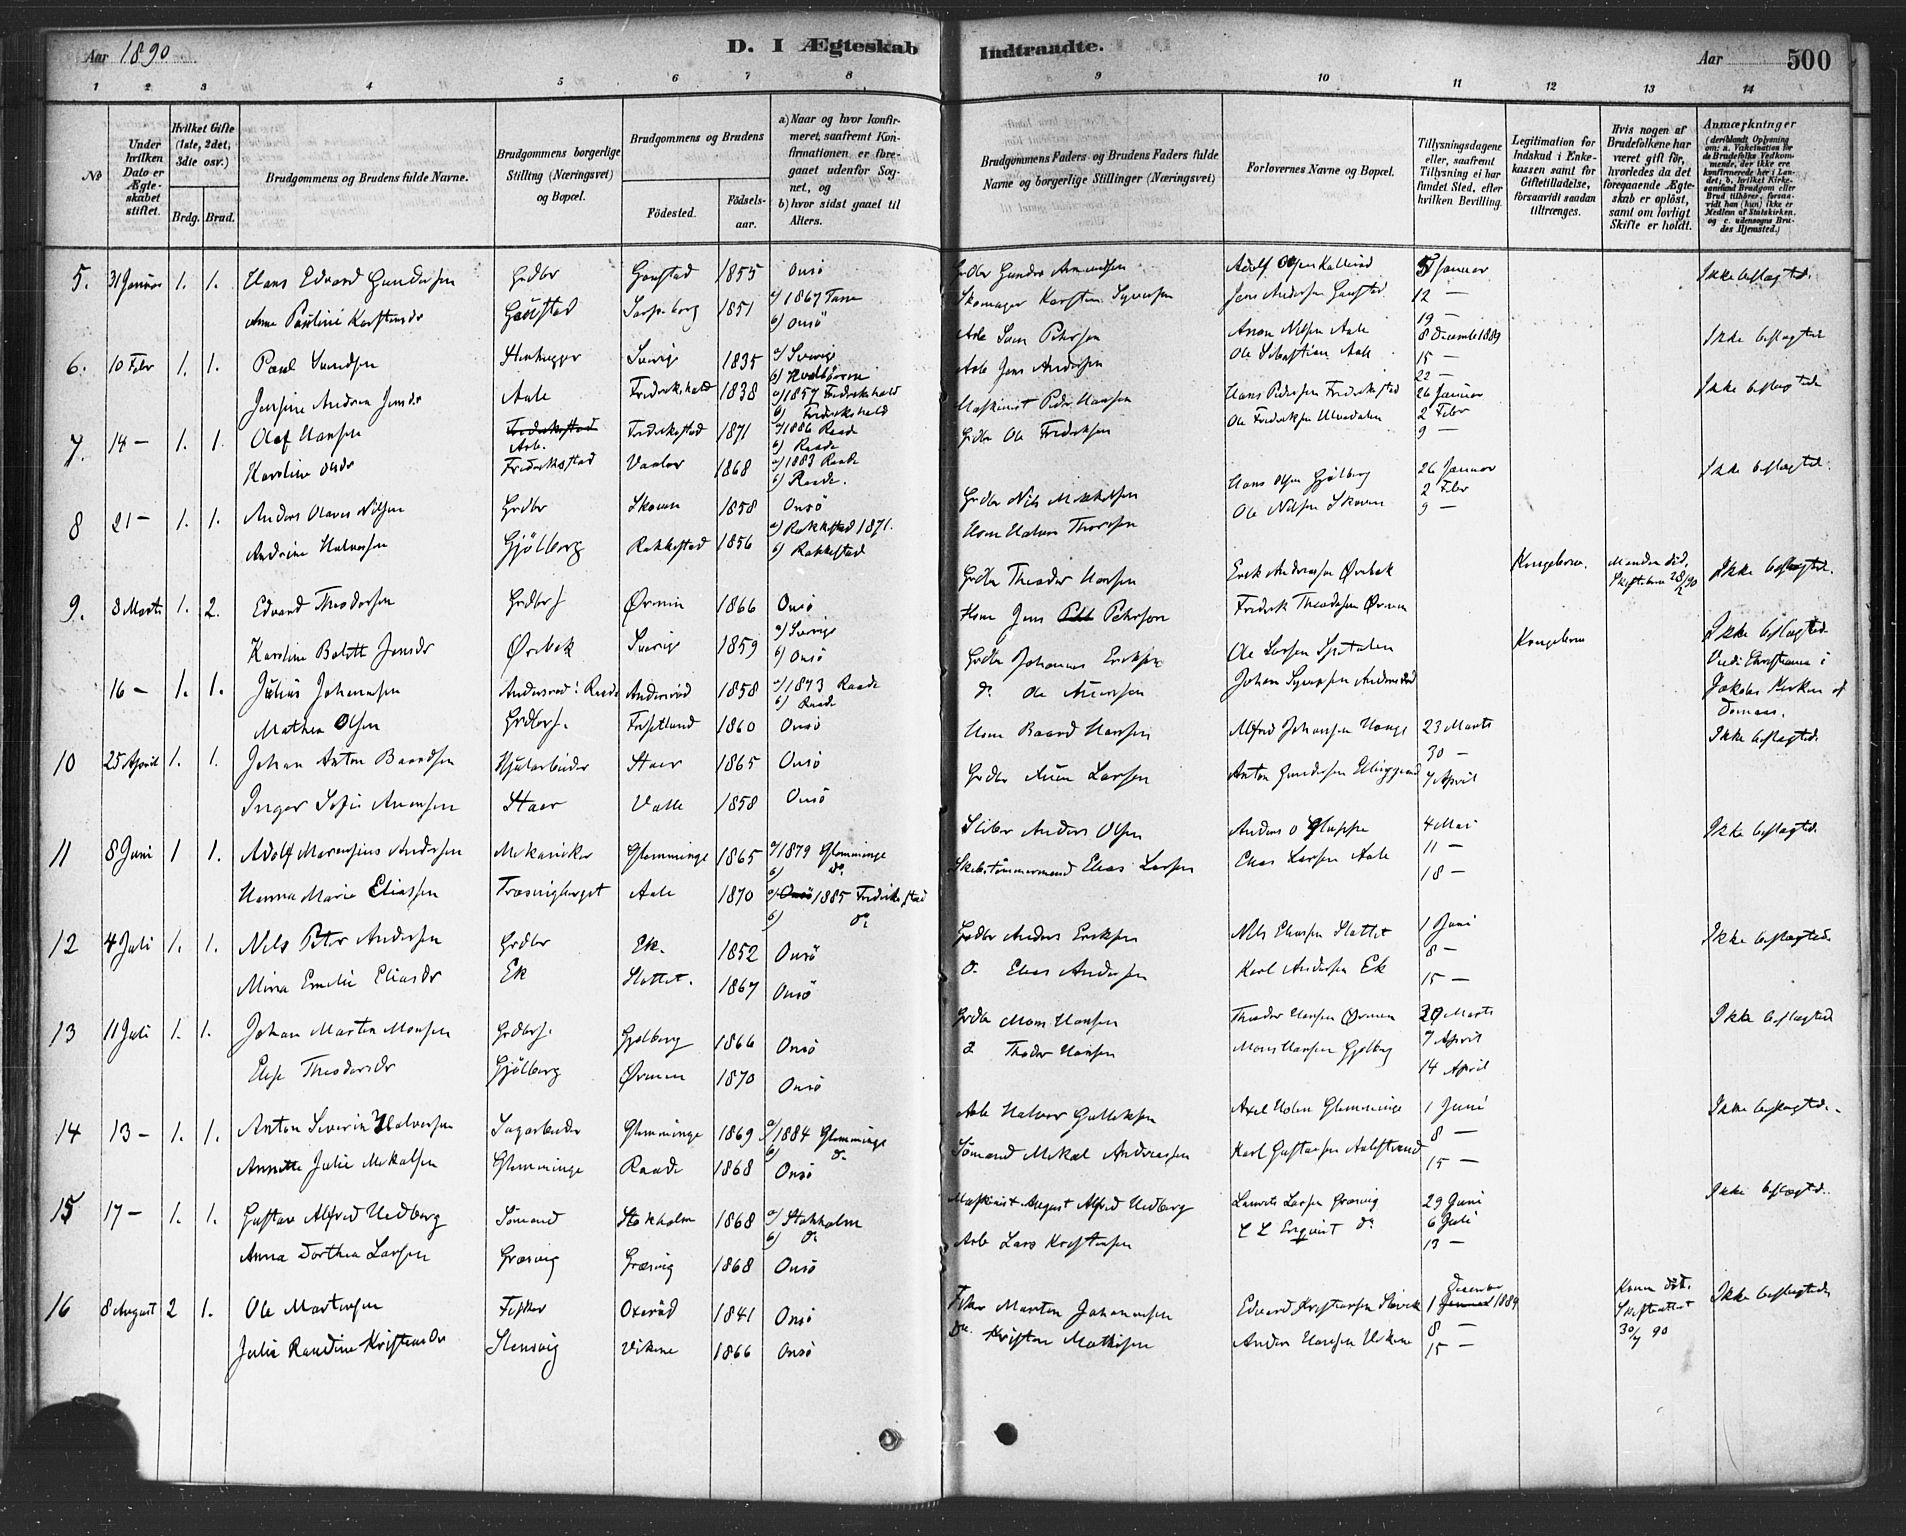 Aar 1890
D. I Ægteskab Indtraadte.
Aar 500
1 2 3 4 5 6 7 8 9 10 11 12 13 14
No
Under hvilken Dato er Ægteskabet stiftet.
Hvilket Gifte (1ste, 2det, 3die osv.)
Brdg. Brud.
Brudgommens og Brudens fulde Navne.
Brudgommens borgerlige Stilling (Næringsvei) og Bopæl.
Brudgommens og Brudens
Födested. Födselsaar.
a) Naar og hvor konfirmeret, saafremt Konfirmationen er foregaaet udenfor Sognet, og
b) hvor sidst gaaet til Alters.
Brudgommens Faders og Brudens Faders fulde Navne og borgerlige Stillinger (Næringsvei)
Forlovernes Navne og Bopæl.
Tillysningsdagene eller, saafremt Tillysning ei har fundet Sted, efter hvilken Bevilling.
Legitimation for Indskud i Enkekassen samt for Giftetilladelse, forsaavidt saadan tiltrænges.
Hvis nogen af Brudefolkene har været gift för, hvorledes da det foregaaende Ægteskab er oplöst, samt om lovligt Skifte er holdt.
Anmærkninger
(deriblandt Oplysning om: a. Vakcination for de Brudefolks Vedkommende, der ikke ere konfirmerede her i Landet; b, hvilket Kirkesamfund Brudgom eller Brud tilhörer, forsaavidt han (hun) ikke er Medlem af Statskirken, og c. udensogns Brudes Hjemsted.)
5. 31 Januar 1. 1. Hans Edvard Gundersen Grdbr Gaustad 1855 Onsö Grdbr Gunder Amundsen 5 Januar Ikke beslægted.
Anne Pauline Karstensdr Gaustad Sarpsborg 1851 a) 1867 Tune Skomager Karsten Syversen Jens Andersen Gaustad 12 —
b) Onsö 19 —
6. 10 Febr 1. 1. Paul Svendsen Stenhugger Sverige 1835 a) Sverige Arb Sven Pehrson Anton Nilsen Aale 8 Decembr 1889 Ikke beslægted
Ole Sebastian Aale 15 —
Josefine Andrea Jensdr Aale Fredrikshald 1838 a) 1857 Fredrikshald Arb Jens Andersen 22 —
b) Fredrikshald
7. 14 — 1. 1. Olaf Hansen Arb. Fredrikstad 1871 a) 1886 Raade Maskinist Peder Hansen Hans Pedersen Fredrikstad 26 Januar Ikke beslægtede
b) Raade 2 Febr
Karoline Olsdr Fredrikstad Vaaler 1868 a) 1883 Raade Grdbr Ole Fredriksen 9 —
b) Raade.
8 21 — 1. 1. Anders Olaves Nilsen Grdbr Skoven 1858 Onsö Grdbr Nils Mikkelsen Hans Olsen Gjølberg 26 Januar Ikke beslægted.
Ole Nilsen Skoven 2 Febr
Andrine Halversen Gjölberg Rakkestad 1856 a) Rakkestad 1871. Hsm Halvor Thorsen 9 —
b) Rakkestad
9. 8 Marts 1. 2. Edvard Theodorsen Grdbrs Ørmen 1866 Onsö Grdbr Theodor Hansen Erik Andersen Ørebek Kongebrev. Manden död. Ikke beslægted.
Karoline Jensdr Ørebek Sverige 1859 a) Sverige Hsm Jens Pehrson Fredrik Theodorsen Ørmen
b) Onsö
16 — 1. 1. Julius Johannesen Andersrød i Raade Andersrød 1858 a) 1873 Raade Grdbr Johannes Eriksen Ole Larsen Spetalen Kongebrev Ikke beslægted
b) Raade Viede i Christiania i Jakobs Kirken af
Mathea Olsen Grdbrs. 1860 Onsö do Ole Johan Syversen
10 25 April 1. 1. Johan Anton Baardsen Hjularbeider Staer 1865 Onsö Hsm Baard Hansen Alfred Johansen Hauge 23 Marts Ikke beslægted.
30 —
Inger Sofie Arnesen Staer Valle 1858 Onsö Grdbr Larsen Anton Gundersen 7 April
11 8 Juni 1 1. Adolf Andersen Mekaniker Glemminge 1865 a) 1879 Glemminge Sliber Anders Olsen 4 Mai Ikke beslægted.
b) do 11 —
Hanna Marie Eliassen Træsvigberget Aale 1870 a) 1885 Fredrikstad Skibstømmermand Elias Larsen Elias Larsen Aale 18 —
b) do
12 4 Juli 1. 1. Nels Peter Andersen Grdbr Ek. 1852 Onsö Grdbr Anders Eriksen Nils Eliassen Slottet 1 Juni Ikke beslægtede
8 —
Mina Emelie Eliasdr Ek Slottet. 1867 Onsö do Elias Andersen Karl Andersen Ek 15 —
13 11 Juli 1. 1. Johan Martin Monsen Grdbrs. Gjølberg 1866 Onsö Grdbr Mons Hansen Theodor Hansen Ørmen Marts Ikke beslægted
7 April
Elise Theodorsdr Gjölberg Ørmen 1870 Onsö do Theodor Hansen Mons Hansen Gjølberg 14 April
14 13 — 1. 1. Anton Severin Halversen Sagarbeider Glemminge 1869 a) 1884 Glemminge Arb Halvor Gulliksen Axel Holm Glemminge 1 Juni Ikke beslægtede.
b) do 8 —
Annette Julie Mikalsen Glemminge Raade 1868 Onsö Sömand Mikal Andreassen Karl Gustavsen Aalestrand 15 —
15 17 — 1. 1. Gustav Alfred Hedberg Sömand Stokholm 1868 a) Stokholm Maskinist August Alfred Hedberg Laurits Larsen Græsvig 29 Juni Ikke beslægtd.
b) do 6 Juli
Anna Dorthea Larsen Græsvig Græsvig 1868 Onsö Arb Lars Kristensen 13 —
16 8 August 2 1. Ole Martinsen Fisker Oxerød 1841 Onsö Fisker Martin Johannesen Edvard Kristiansen Slevik 1 Desember 1889 Konen död. Skifteattest 30/7 90 Ikke beslægtede
8 —
Julie Randine Kristensdr Slensvig Vikene 1866 Onsö do Kristen Mathisen Anders Hansen Vikene 15 —